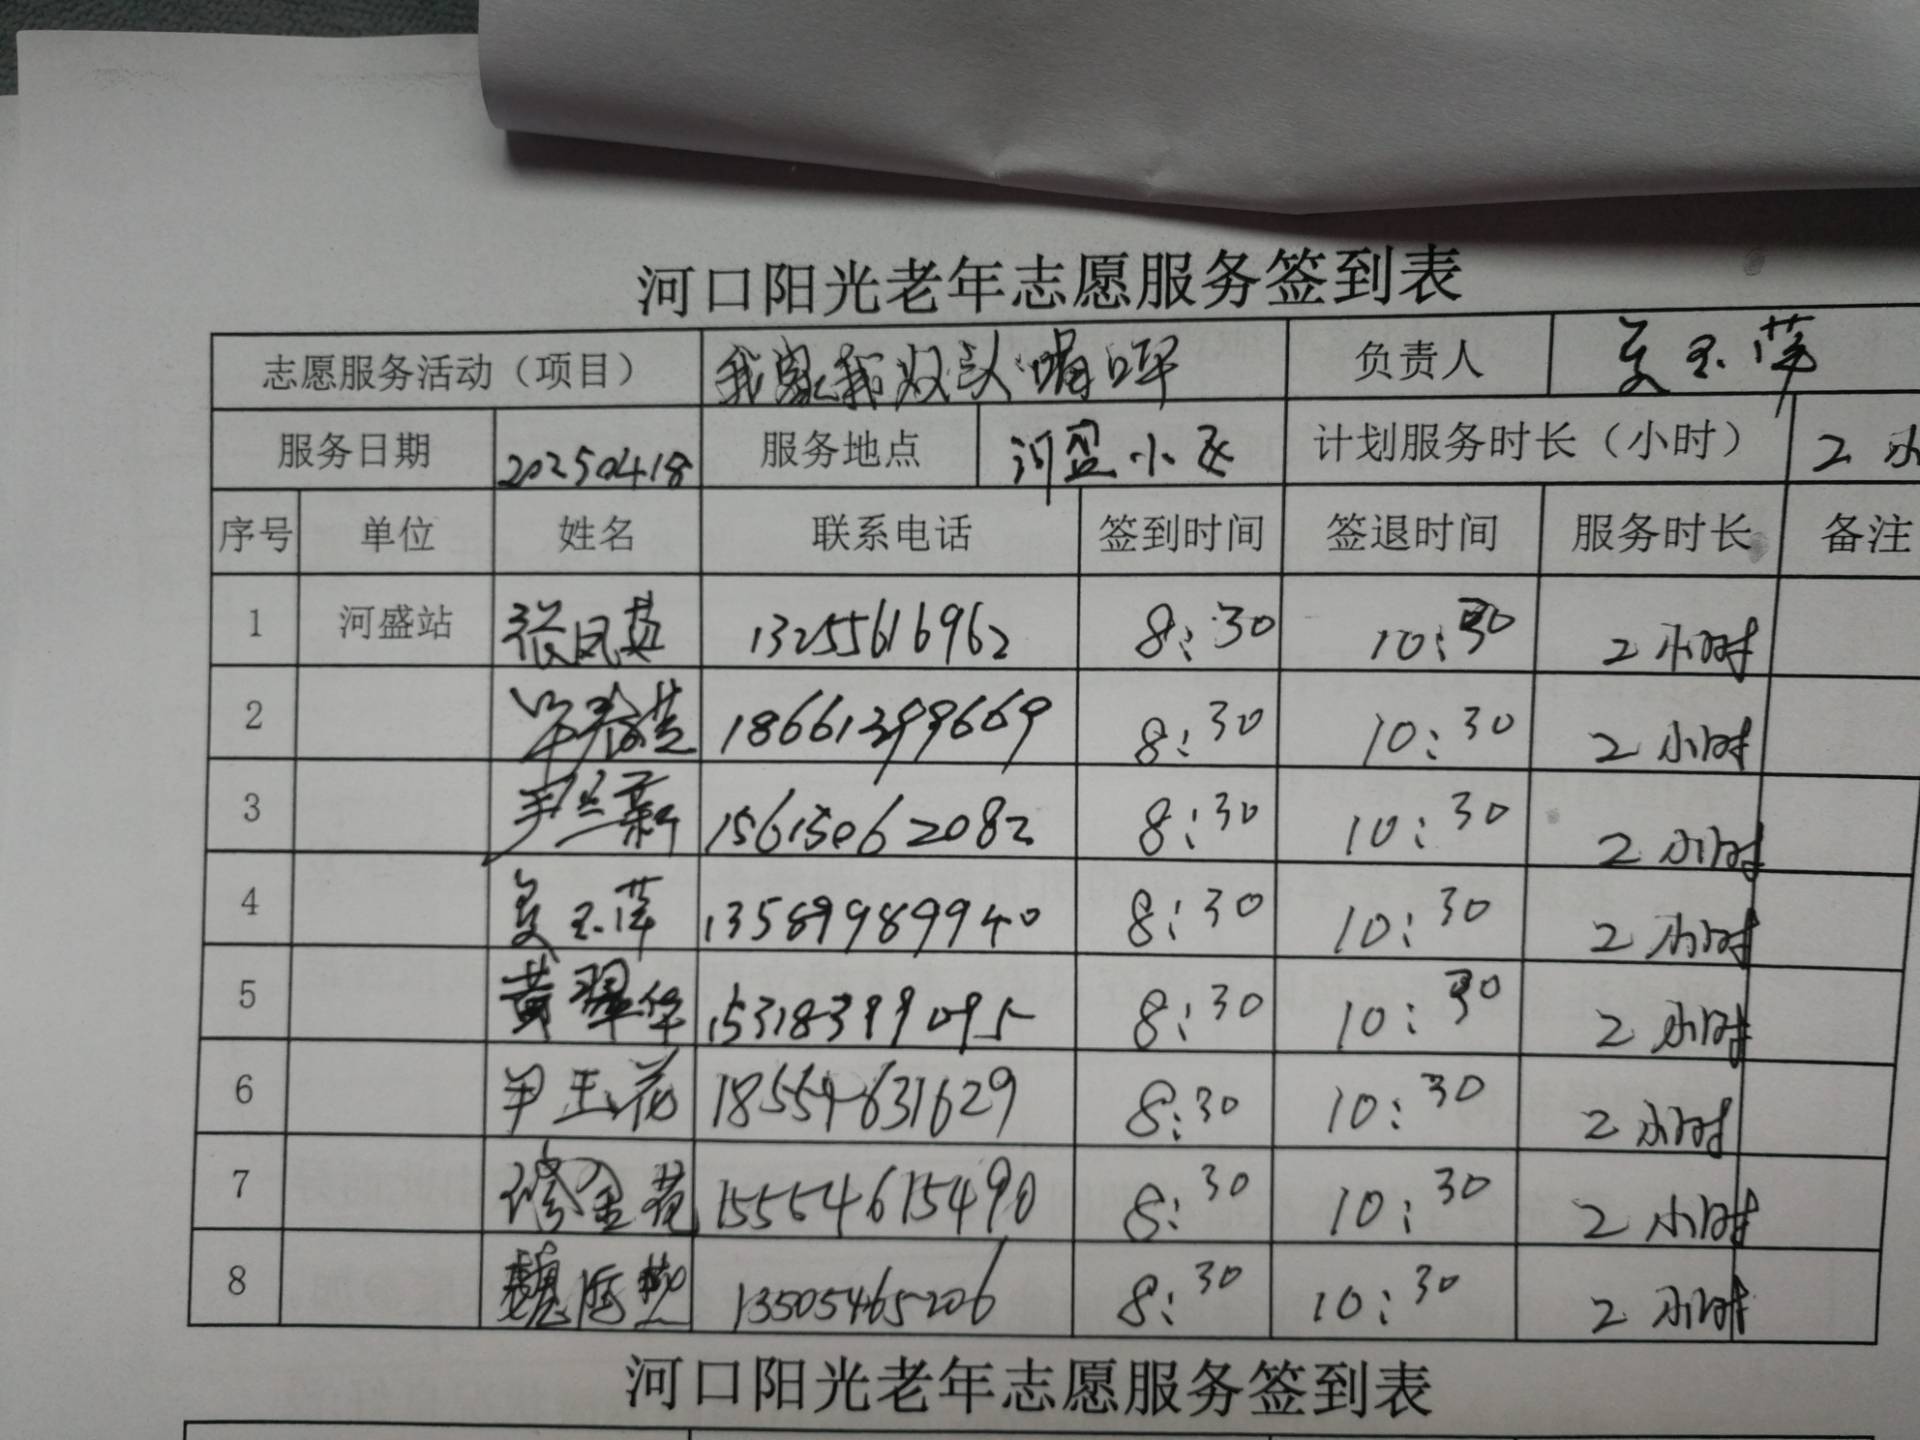 河口阳光老年志愿服务签到表
志愿服务活动（项目） 我家我 负责人 玉萍
服务日期 20250418 服务地点 河盛小区 计划服务时长（小时） 2 小
序号 单位 姓名 联系电话 签到时间 签退时间 服务时长 备注
1 河盛站 张凤英 13255616962 8:30 10:30 2小时
2 18661399669 8:30 10:30 2小时
3 尹兰新 15615062082 8:30 10:30 2小时
4 玉萍 13589989940 8:30 10:30 2小时
5 黄翠华 15318399095 8:30 10:30 2小时
6 尹玉花 18554631629 8:30 10:30 2小时
7 15554615490 8:30 10:30 2小时
8 魏 13505465206 8:30 10:30 2小时
河口阳光老年志愿服务签到表